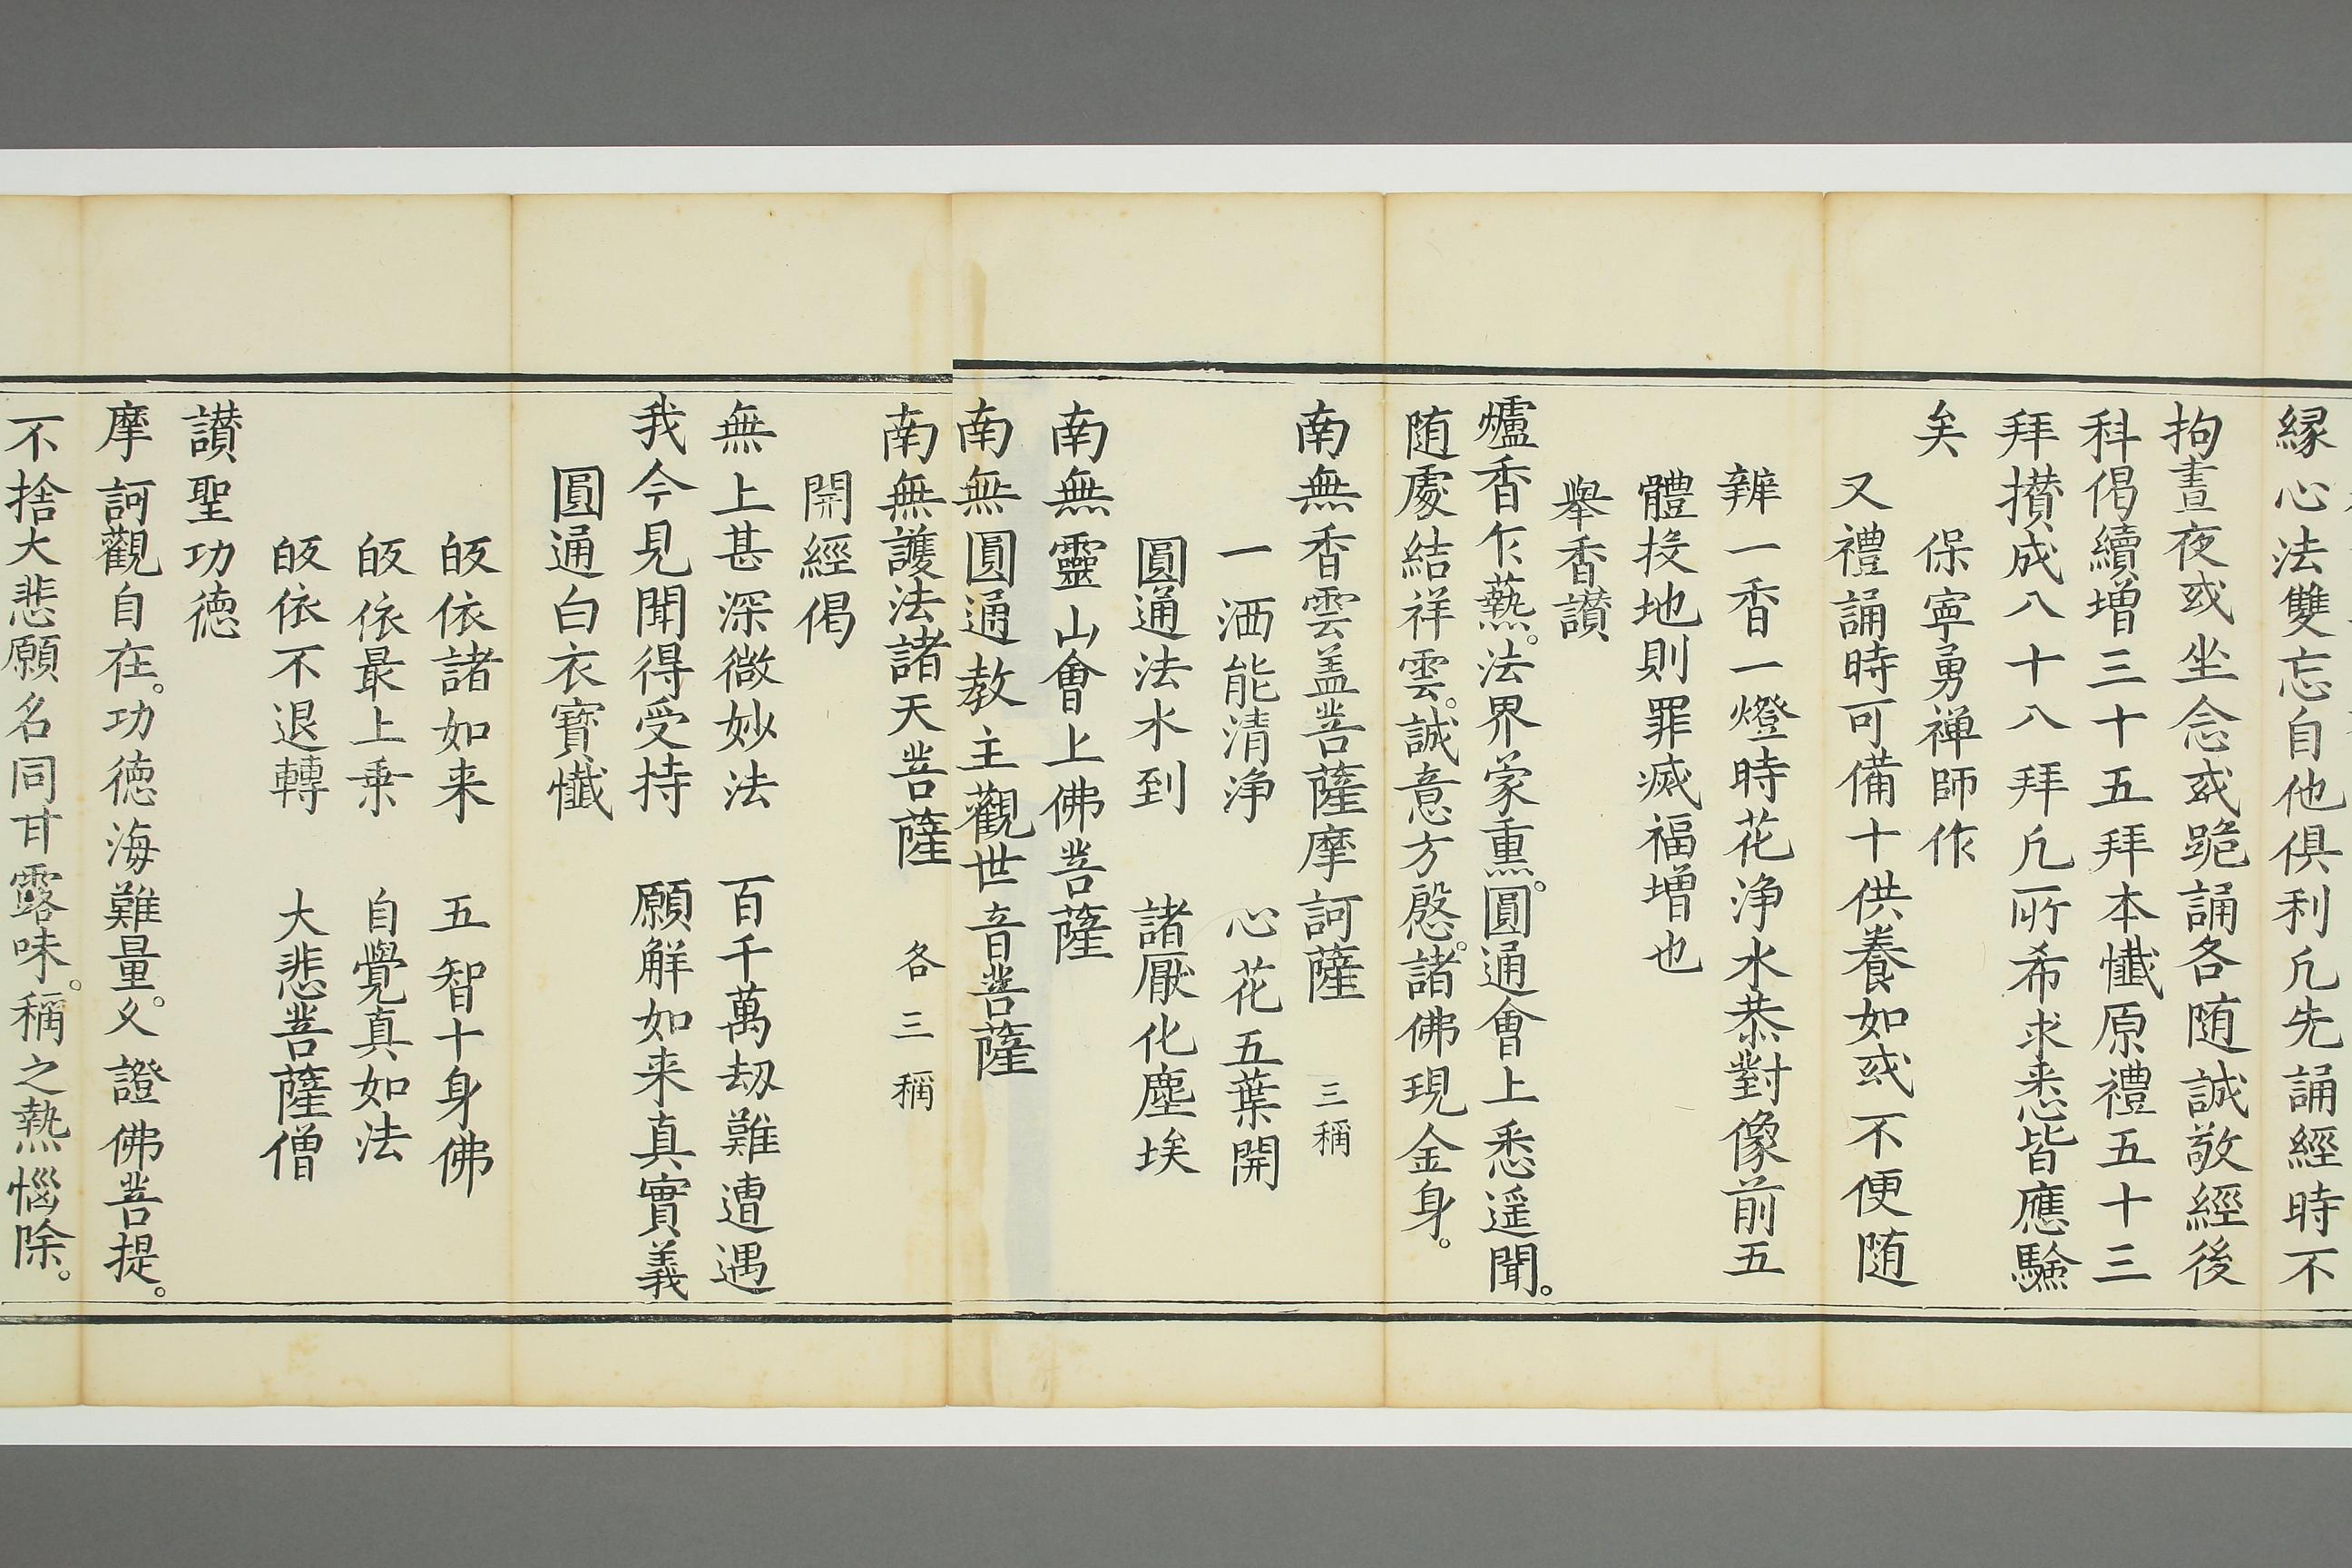 縁心法雙忘自他俱利凢先誦經時不
拘晝夜或坐念或跪誦各随誠敬經後
科偈續增三十五拜本懴原禮五十三
拜攅成八十八拜凢所希求悉皆應驗
矣　保寧勇禅師作
又禮誦時可備十供養如或不便随
辦一香一燈時花浄水恭對像前五
體投地則罪㓕福增也
舉香讃
爐香乍爇。法界蒙熏。圓通會上悉遥聞。
随處結祥雲。誠意方慇。諸佛現金身。
南無香雲盖菩薩摩訶薩　三稱
一洒能清浄　心花五葉開
圓通法水到　諸厭化塵埃
南無靈山會上佛菩薩
南無圓通教主觀世音菩薩
南無護法諸天菩薩　各三稱
開經偈
無上甚深微妙法　百千萬刼難遭遇
我今見聞得受持　願觧如来真實義
圓通白衣寶懴
皈依諸如来　五智十身佛
皈依最上乗　自覺真如法
皈依不退轉　大悲菩薩僧
讃聖功德
摩訶觀自在。功德海難量。久證佛菩提。
不捨大悲願名同甘露味。稱之熱惱除。